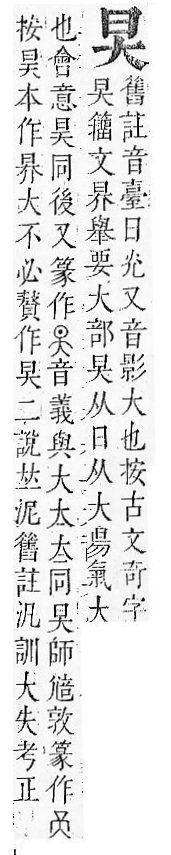 旲
舊註音臺日光又音影大也按古文奇字
旲籀文界舉要大部旲从日从大昜氣大
也會意旲同後又篆作音義與大太夳同旲師敦篆作
按旲本作界大不必贅作旲二說𠀤泥舊註汎訓大失考正